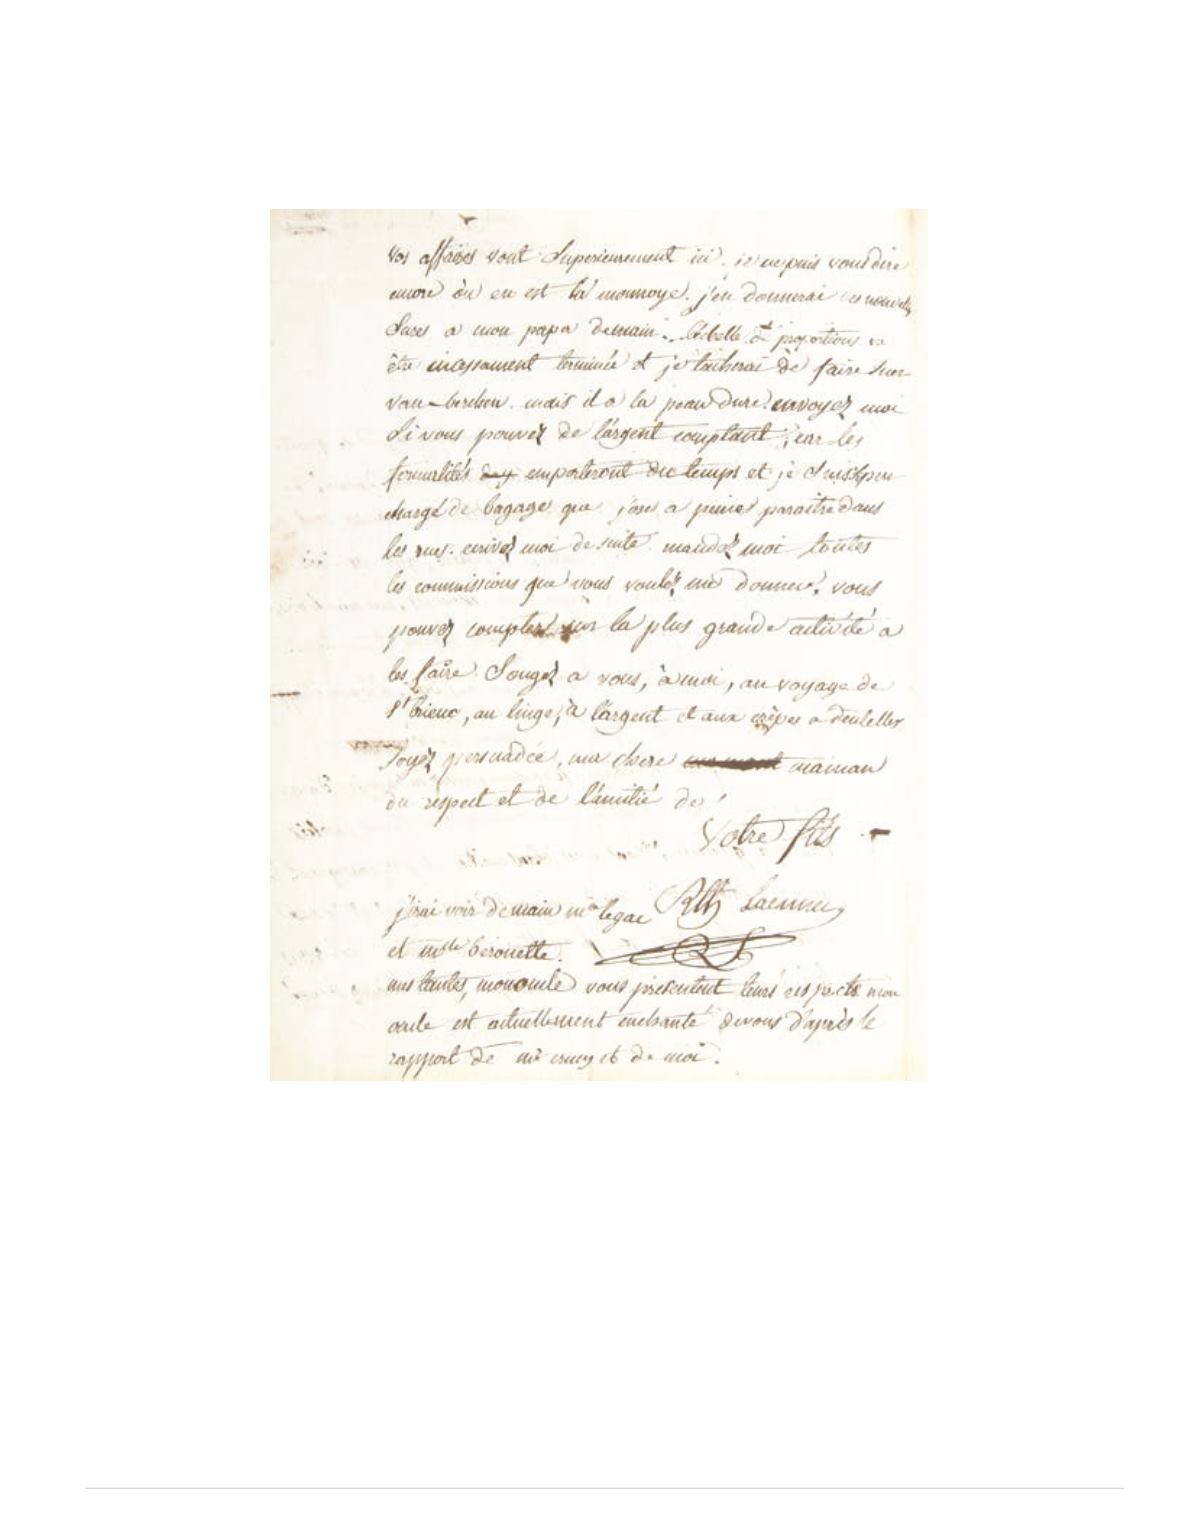 vos affaires vont superieurement ici. je ne puis vous dire
encore où en est la monnoye. j'en donnerai des nouvelles
sures a mon papa demain. l'échelle de proportions va
être incessament terminée et je tacherai de faire suer
van-berchen. mais il a la peau dure. envoyez moi
si vous pouvez de l'argent comptant, car les
formalités emporteront du temps et je suis si peu
chargé de bagage que j'ose a peine paraitre dans
les rues. ecrivez moi de suite. mandez moi toutes
les commissions que vous voulez me donner, vous
pouvez compter sur la plus grande activité a
les faire. songez a vous, à moi, au voyage de
st brieuc, au linge, à l'argent et aux crêpes a dentelles
soyez persuadée, ma chere maman
du respect et de l'amitié de
votre fils
j'irai voir demain me legac Rth Laennec
et mlle berouette.
mes tantes, mon oncle vous presentent leurs respects. mon
oncle est actuellement enchanté de vous d'après le
rapport de mr crucy et de moi.